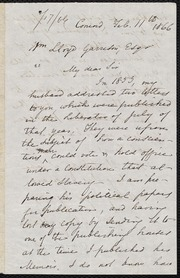 Concord, Feb. 11th 1866
Wm Lloyd Garrison, Esqr
My dear Sir
In 1833, my
husband addressed two letters
to you which were published
in the Liberator of July of
that year. They were upon
the subject of how a conscien-
tious man could vote & hold office
under a constitution that al-
lowed slavery. I am pre-
paring his political papers
for publication, and having
lost my copy by sending it to
one of the publishing houses
at the time I published his
Memoir, I do not know how